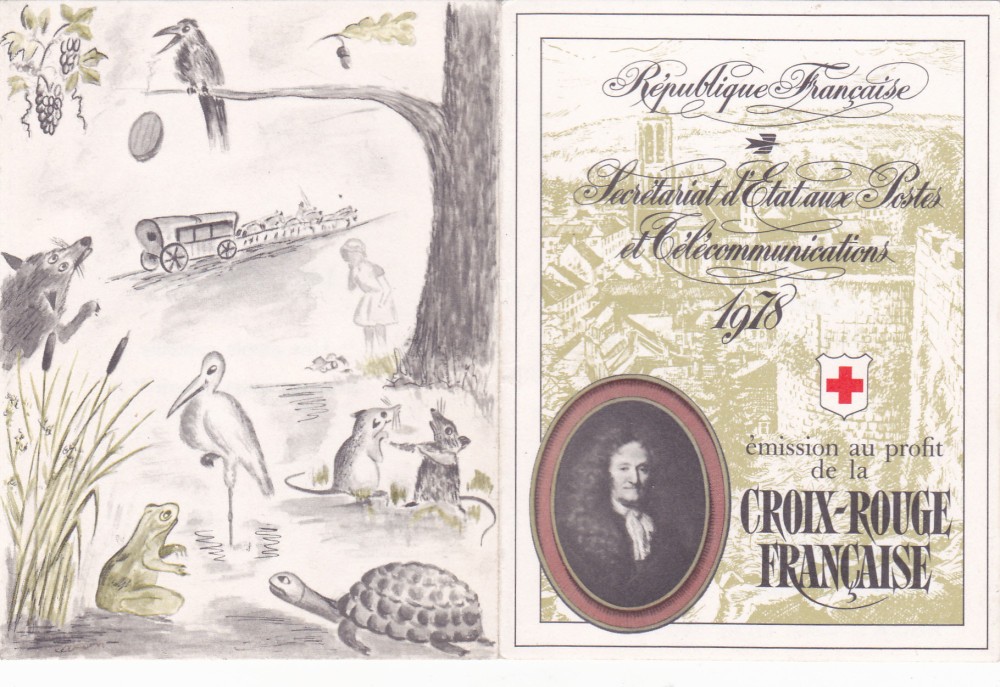 République Française
Secrétariat d'Etat aux Postes
et Télécommunications
1978
émission au profit
de la
CROIX-ROUGE
FRANÇAISE